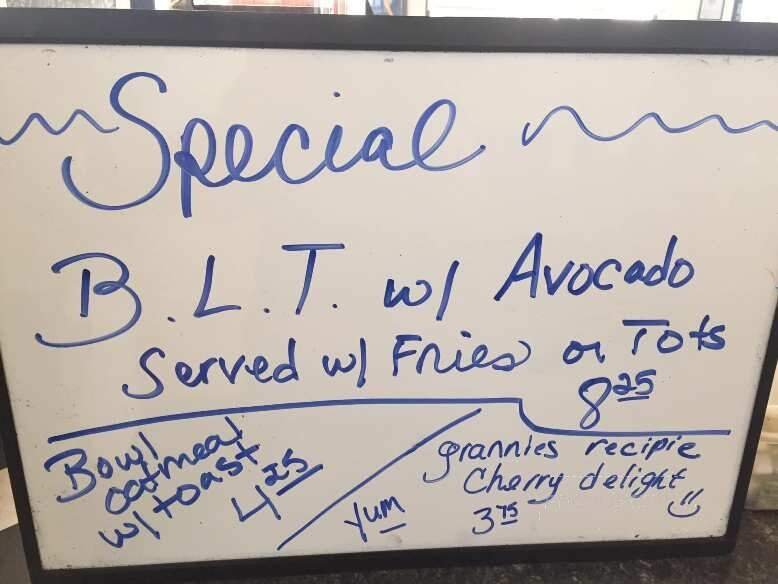 Special
B.L.T. w/ Avocado
Served w/ Fries or Tots
8 25
Bowl
oatmeal
w/ toast
4 25
Yum
grannies recipie
Cherry delight
3 75